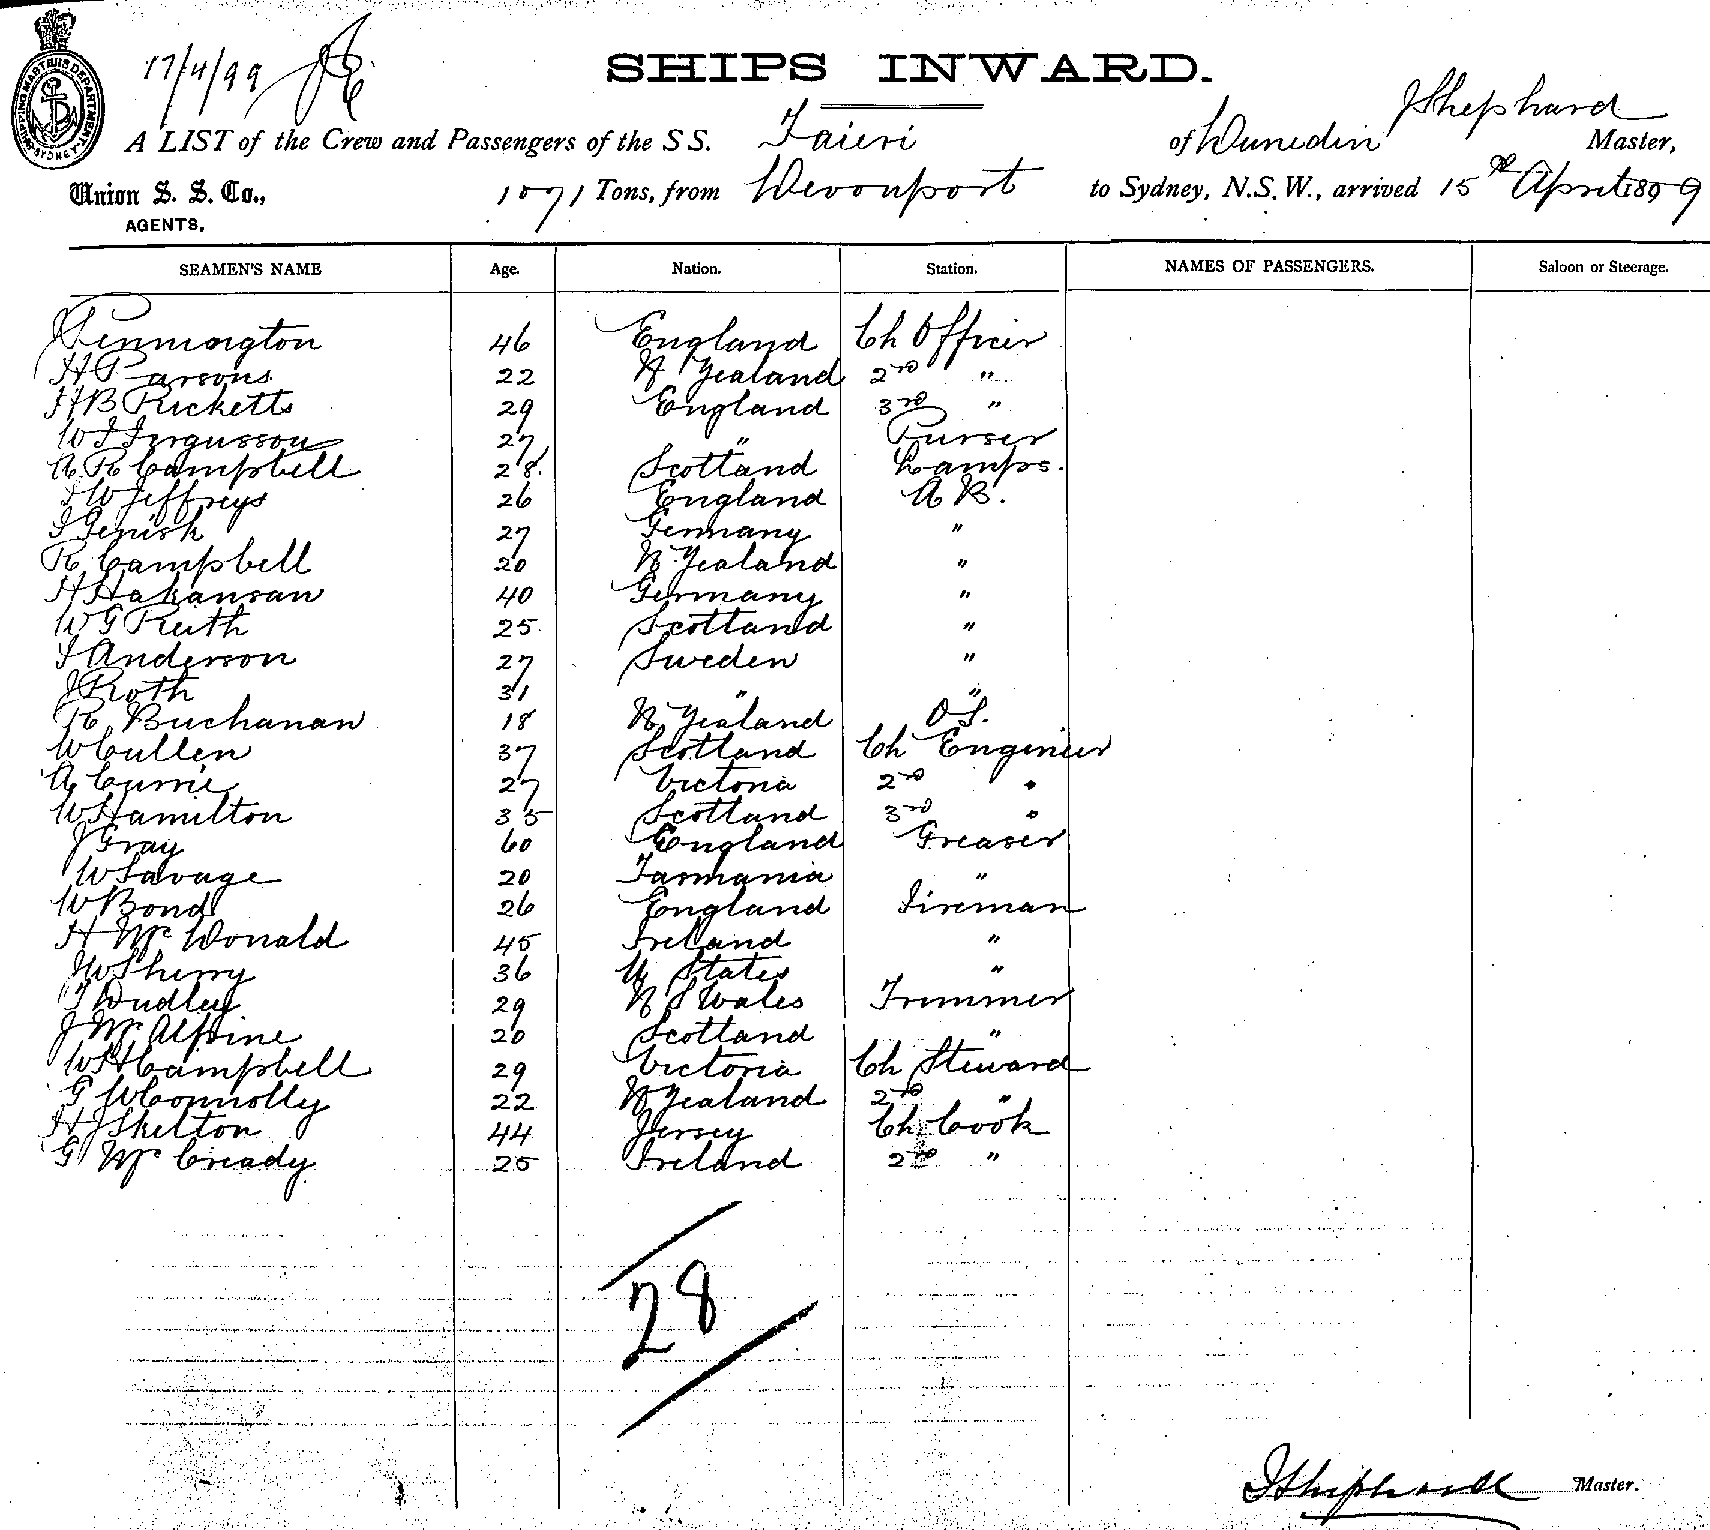 SHIPPING MASTERS DEPARTMENT SYDNEY
17/4/99
SHIPS INWARD.
J Shephard
A LIST of the Crew and Passengers of the SS. Taieri of Dunedin Master,
Union S. S. Co., 1071 Tons, from Devonport to Sydney, N.S.W., arrived 15th April 1899
AGENTS,
SEAMEN'S NAME Age. Nation. Station. NAMES OF PASSENGERS. Saloon or Steerage.
J Pennington 46 England Ch Officer
H Parsons 22 N Zealand 2nd "
H B Ricketts 29 England 3rd "
W J Fergusson 27 " Purser
A R Campbell 28 Scotland Lamps.
J W Jeffreys 26 England A B.
27 Germany "
R Campbell 20 N Zealand "
H Hakansan 40 Germany "
W G Ruth 25 Scotland "
J Anderson 27 Sweden "
J Roth 31 " "
R Buchanan 18 N Zealand O S.
W Cullen 37 Scotland Ch Engineer
A Currie 27 Victoria 2nd "
W Hamilton 35 Scotland 3rd "
J Gray 60 England Greaser
W Savage 20 Tasmania "
W Bond 26 England Fireman
H McDonald 45 Ireland "
J W Sherry 36 U States "
T Dudley 29 N S Wales Trimmer
J McAlpine 20 Scotland "
W H Campbell 29 Victoria Ch Steward
G W Connolly 22 N Zealand 2nd "
H J Skelton 44 Jersey Ch Cook
G McCready 25 Ireland 2nd "
28
J Shephard Master.